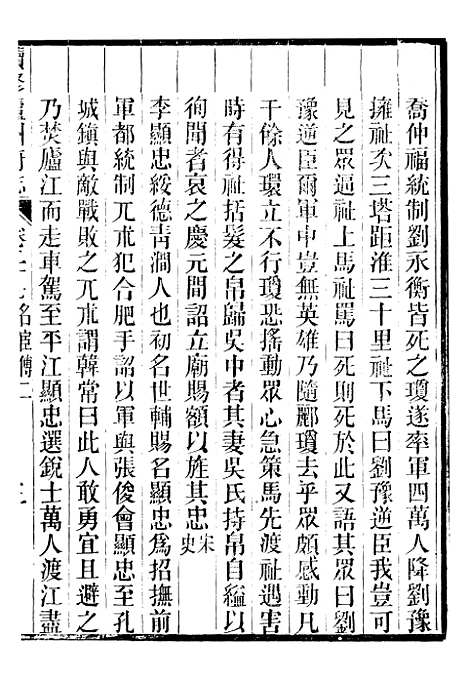 喬仲福統制劉永衡皆死之瓊遂率軍四萬人降劉豫
擁祉次三塔距淮三十里祉下馬曰劉豫逆臣我豈可
見之眾逼祉上馬祉罵曰死則死於此又語其眾曰劉
豫逆臣爾軍中豈無英雄乃隨酈瓊去乎眾頗感動凡
千餘人環立不行瓊恐搖動眾心急策馬先渡祉遇害
時有得祉括髮之帛歸吳中者其妻吳氏持帛自縊以
徇聞者哀之慶元間詔立廟賜額以旌其忠宋史
李顯忠綏德青澗人也初名世輔賜名顯忠為招撫前
軍都統制兀朮犯合肥手詔以軍與張俊會顯忠至孔
城鎮與敵戰敗之兀朮謂韓常曰此人敢勇宜且避之
乃焚廬江而走車駕至平江顯忠選銳士萬人渡江盡
續修廬州府志 卷二十七名宦傳二 三